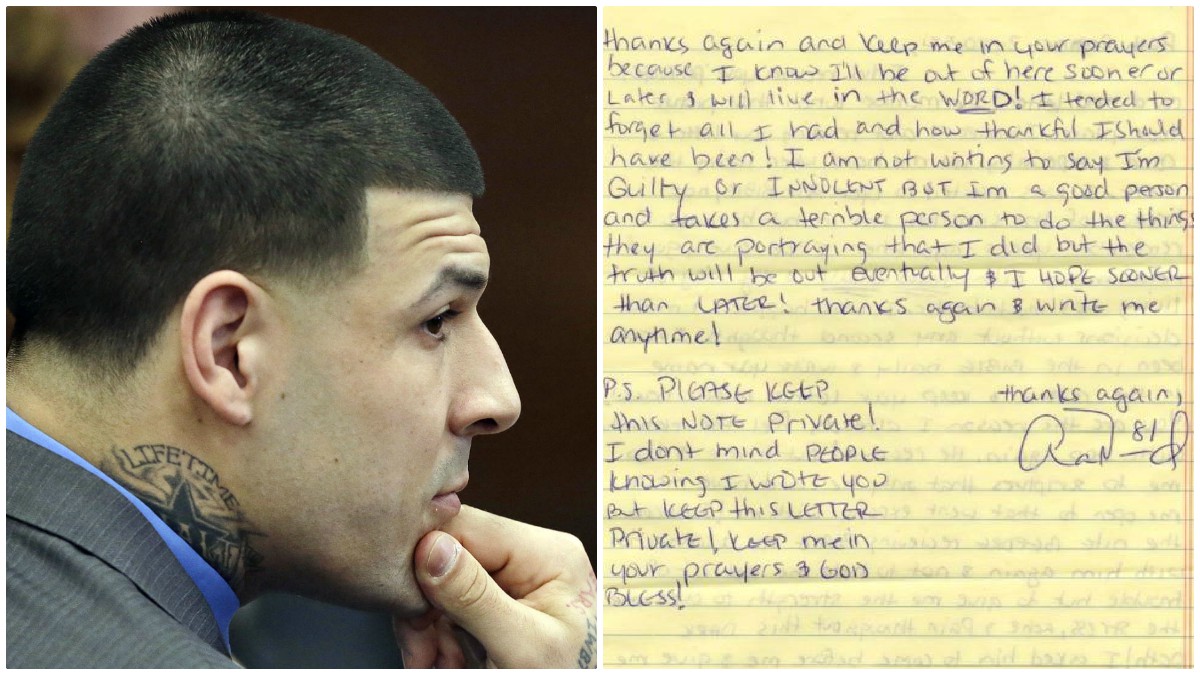 LIFETIME
thanks again and keep me in your prayers
because I know I'll be out of here sooner or
Later & will live in the WORD! I tended to
forget all I had and how thankful I should
have been! I am not writing to say I'm
Guilty or INNOCENT BUT Im a good person
and takes a terrible person to do the things
they are portraying that I did but the
truth will be out eventually & I HOPE SOONER
than LATER! thanks again & write me
anytime!
P.S. PLEASE KEEP
this NOTE Private!
I dont mind PEOPLE
knowing I wrote you
But KEEP this LETTER
Private! KEEP me in
your prayers & GOD
BLESS!
thanks again,
81